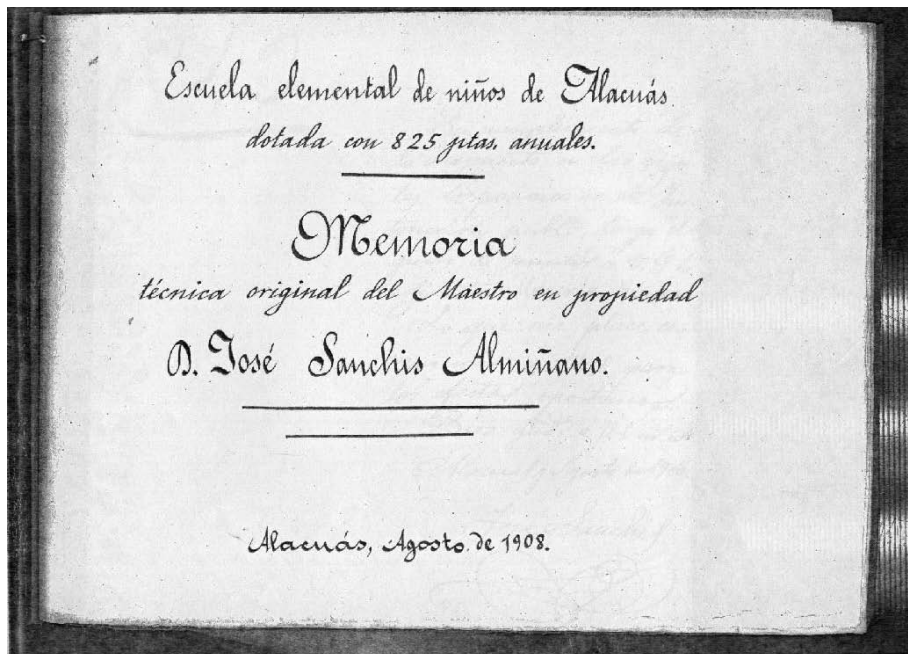 Escuela elemental de niños de Alacuás
dotada con 825 ptas. anuales.
Memoria
técnica original del Maestro en propiedad
D. José Sanchis Almiñano.
Alacuás, Agosto de 1908.